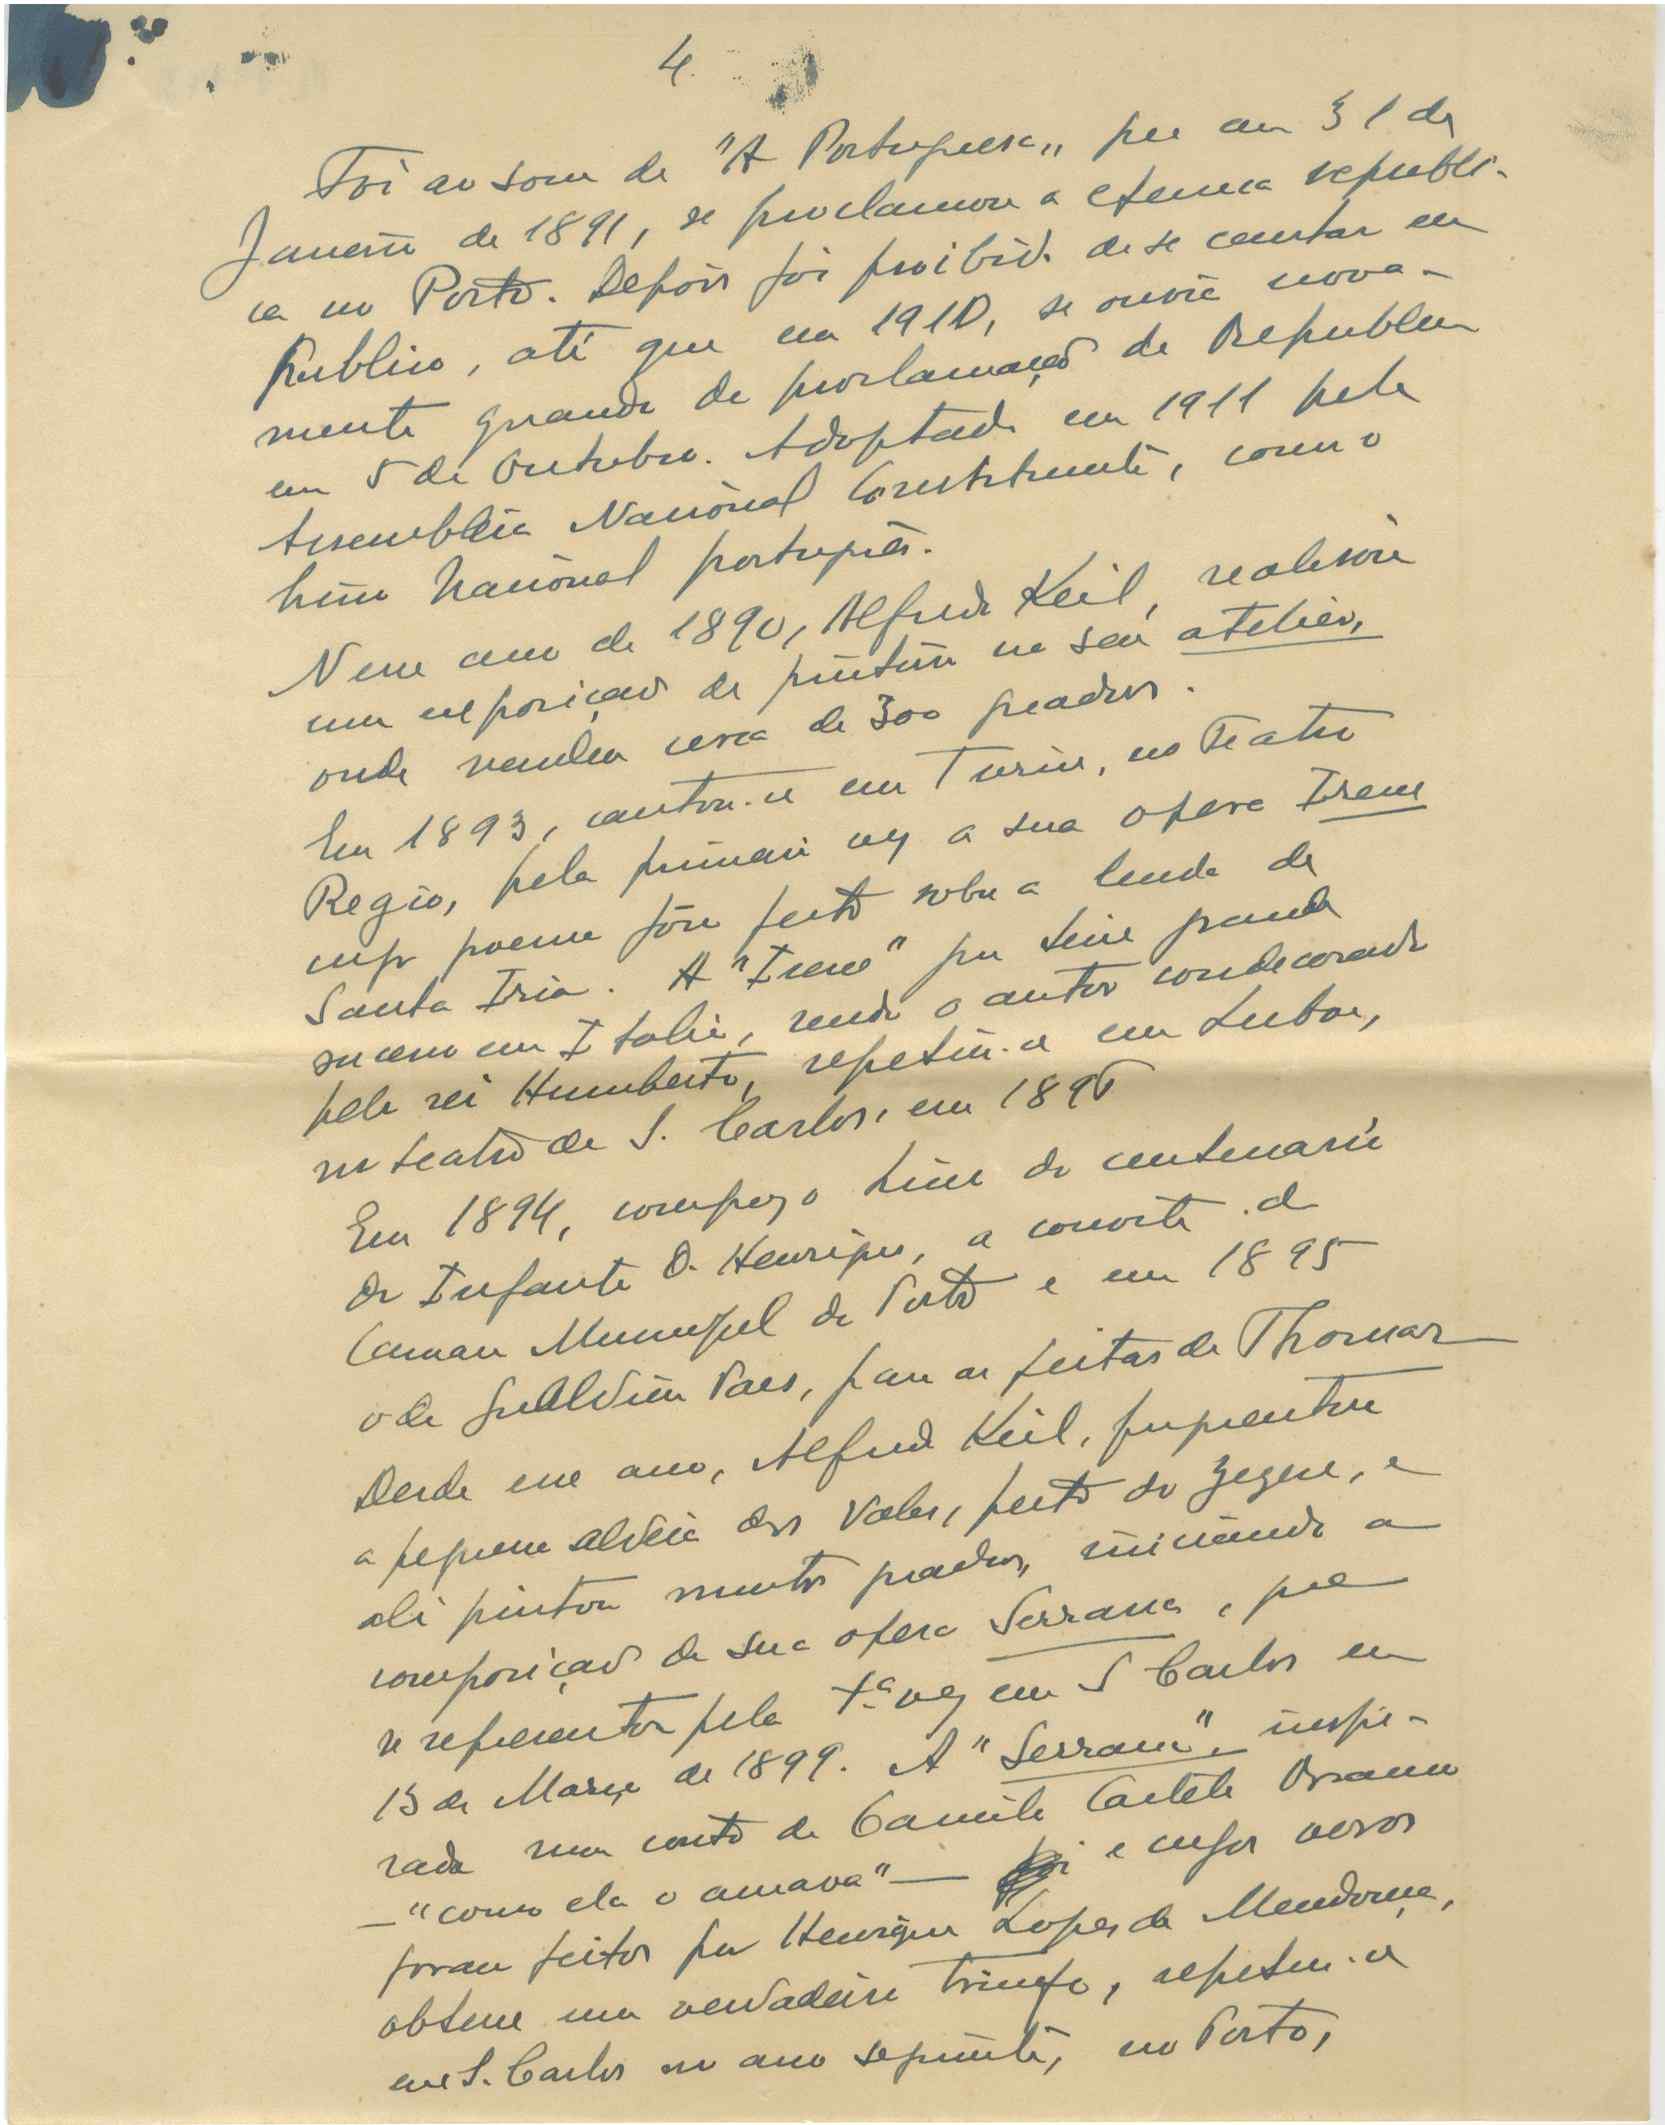 4.
Foi ao som de "A Portuguesa" que em 31 de
Janeiro de 1891, se proclamou a efemera republi-
ca no Porto. Depois foi proibida de se cantar em
Publico, até que em 1910, se ouviu nova-
mente quando da proclamação da Republica
em 5 de Outubro. Adoptada em 1911 pela
Assembleia Nacional Constituinte, como
hino Nacional português.
Nesse ano de 1890, Alfredo Keil, realisou
uma exposição de pintura no seu atelier,
onde vendeu cerca de 300 quadros.
Em 1893, cantou-se em Turim, no Teatro
Regio, pela primeira vez a sua opera Irene
cujo poema fôra feito sobre a lenda de
Santa Iria. A "Irene" que teve grande
sucesso em Italia, sendo o autor condecorado
pelo rei Humberto, repetiu-se em Lisboa,
no teatro de S. Carlos, em 1896
Em 1894, compoz o hino do centenario
do Infante D. Henrique, a convite da
Camara Municipal do Porto e em 1895
o de Gualdim Paes, para as festas de Thomar
Desde esse ano, Alfredo Keil, frequentou
a pequena aldeia dos Vales, perto do Zezere, e
ali pintou muitos quadros, iniciando a
composição da sua opera Serrana, que
se representou pela 1.ª vez em S Carlos em
13 de Março de 1899. A "Serrana", inspi-
rada num conto de Camilo Castelo Branco
— "como ela o amava" — e cujos versos
foram feitos por Henrique Lopes de Mendonça,
obteve um verdadeiro triunfo, repetiu-se
em S. Carlos no ano seguinte, no Porto,